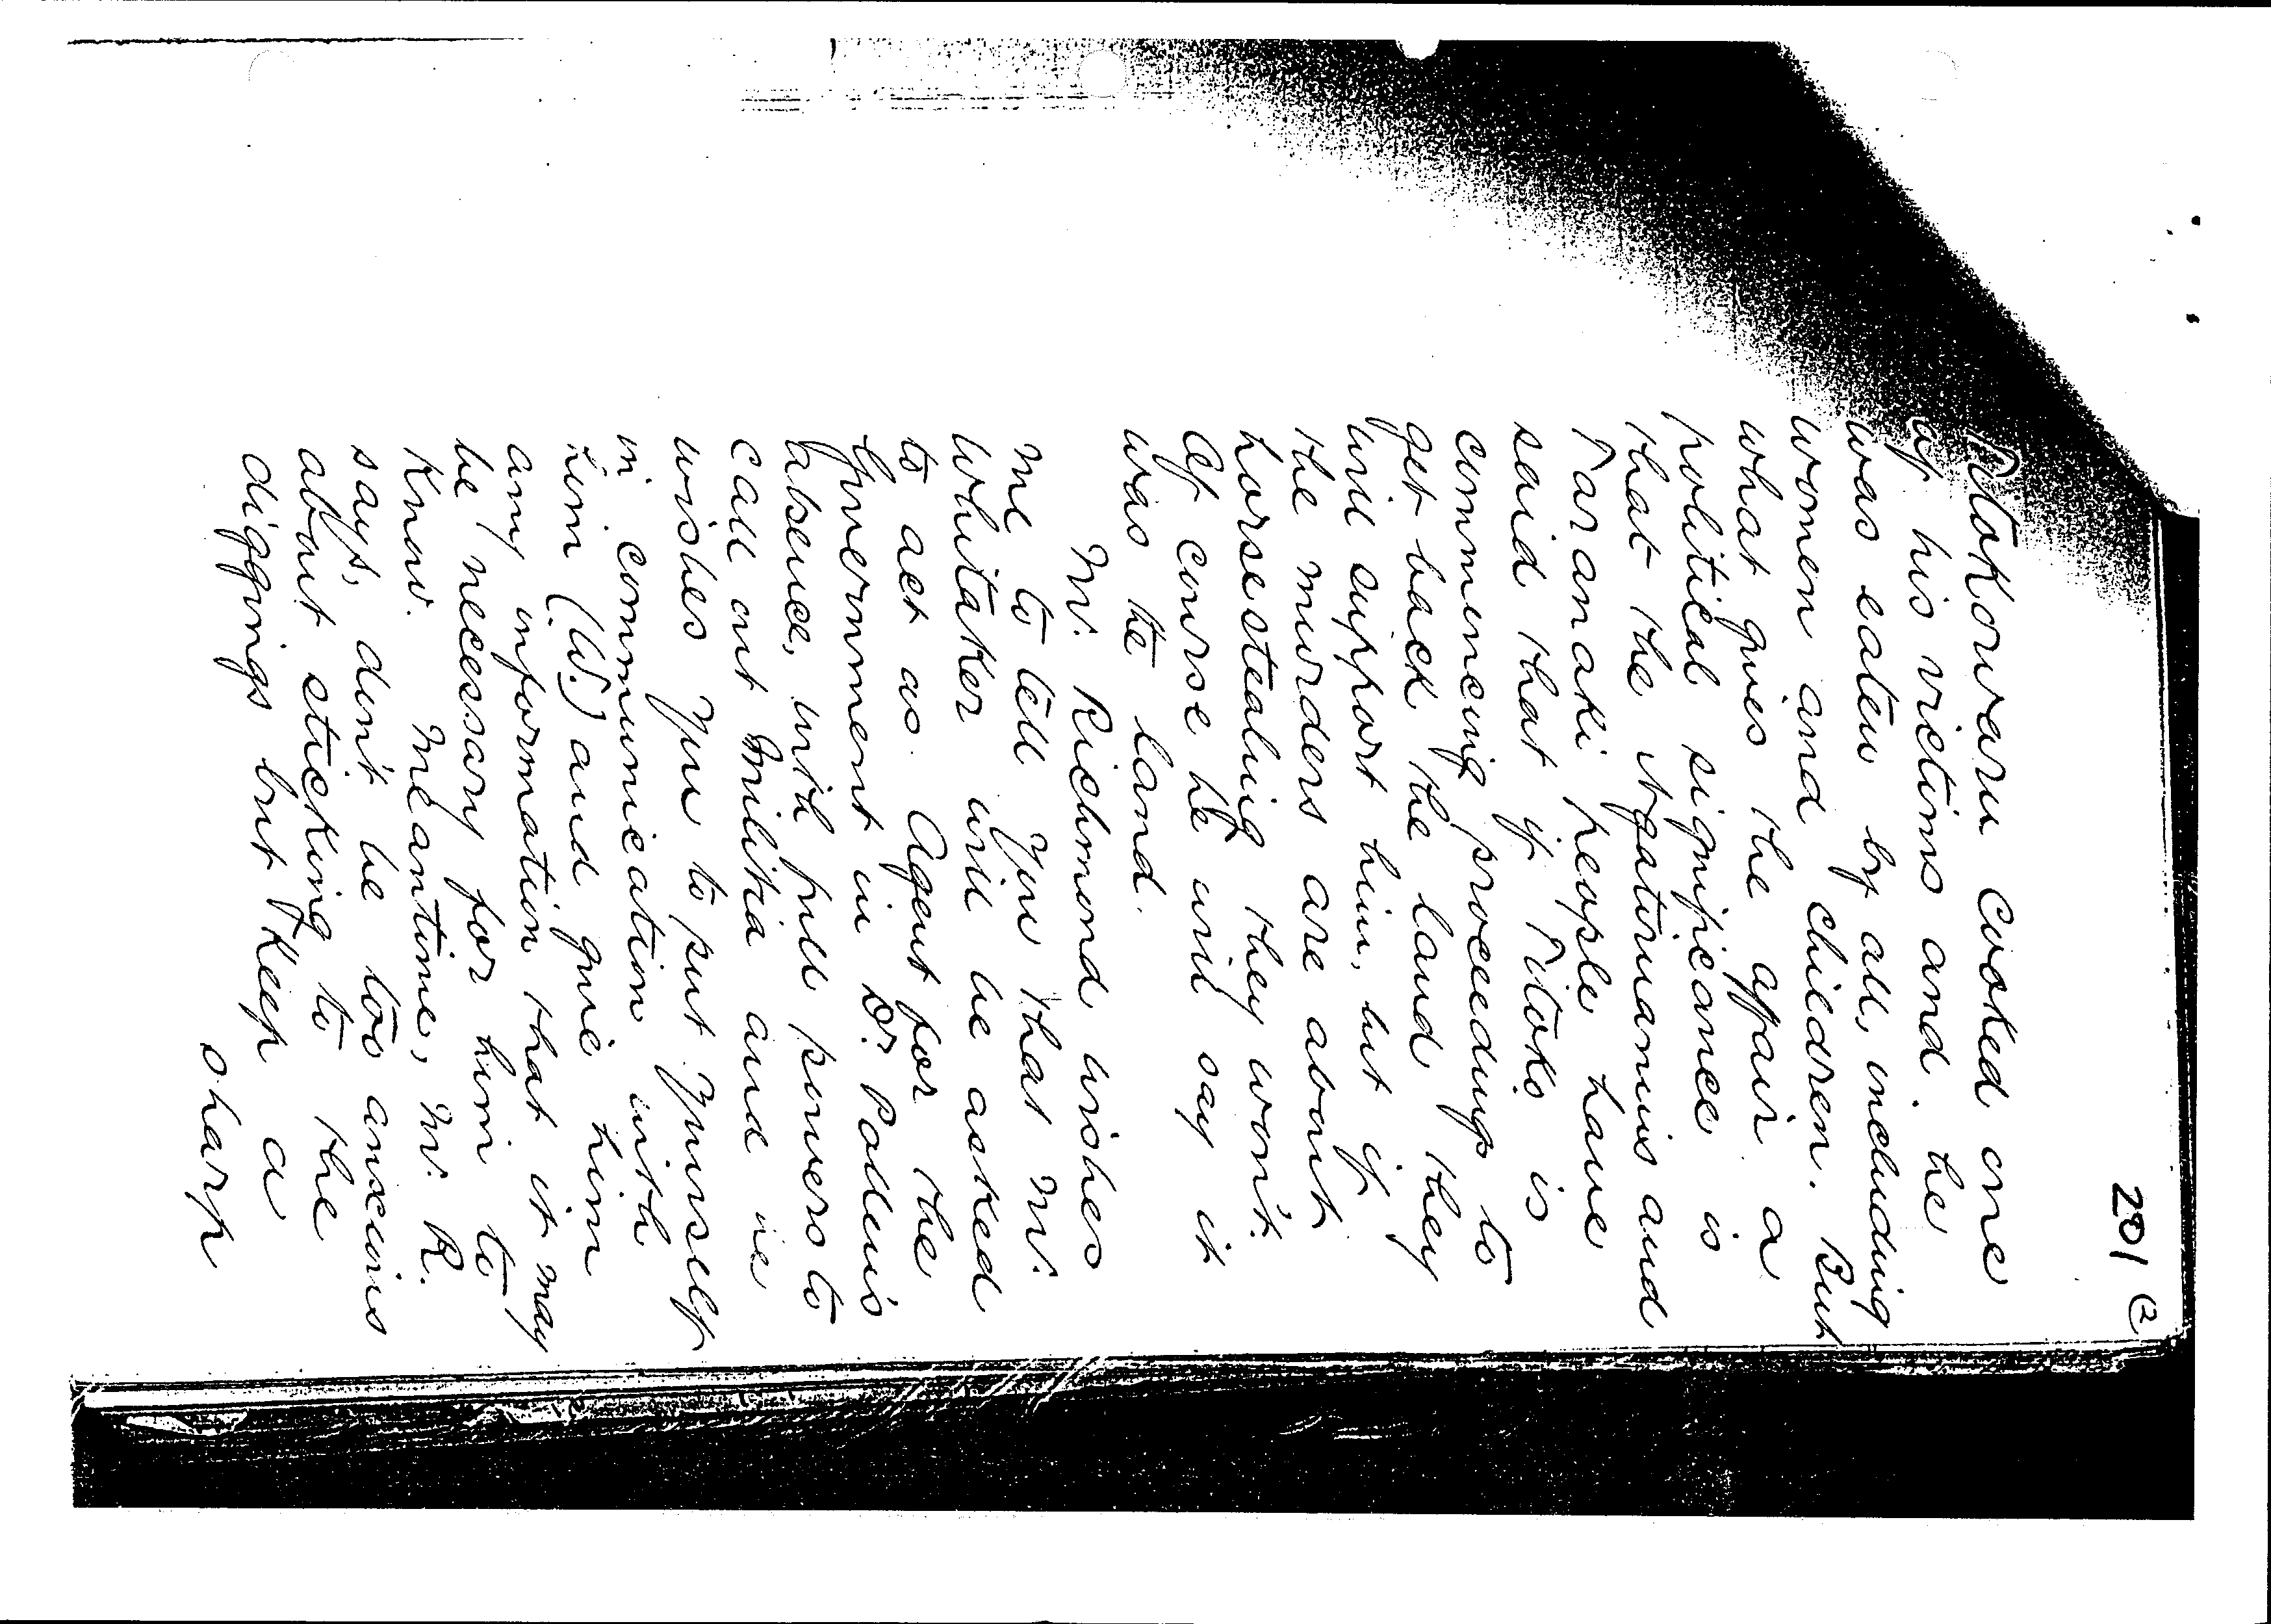 201 (2
Titokowaru cooked one
of his victims and he
was eaten by all, including
women and children. But
what gives the affair a
political significance is
that the Ngatiruanuis and
Taranaki people have
said that if Titoko is
commencing proceedings to
get back the land they
will support him, but if
the murders are about
horsestealing they won't.
Of course he will say it
was the land.
Mr. Richmond wishes
me to tell you that Mr.
Whitaker will be asked
to act as Agent for the
Government in Dr. Pollen's
absence, with full powers to
call out Militia and he
wishes you to put yourself
in communication with
him (W.) and give him
any information that it may
be necessary for him to
know. Meantime, Mr. R.
says, don't be too anxious
about sticking to the
diggings but keep a
sharp